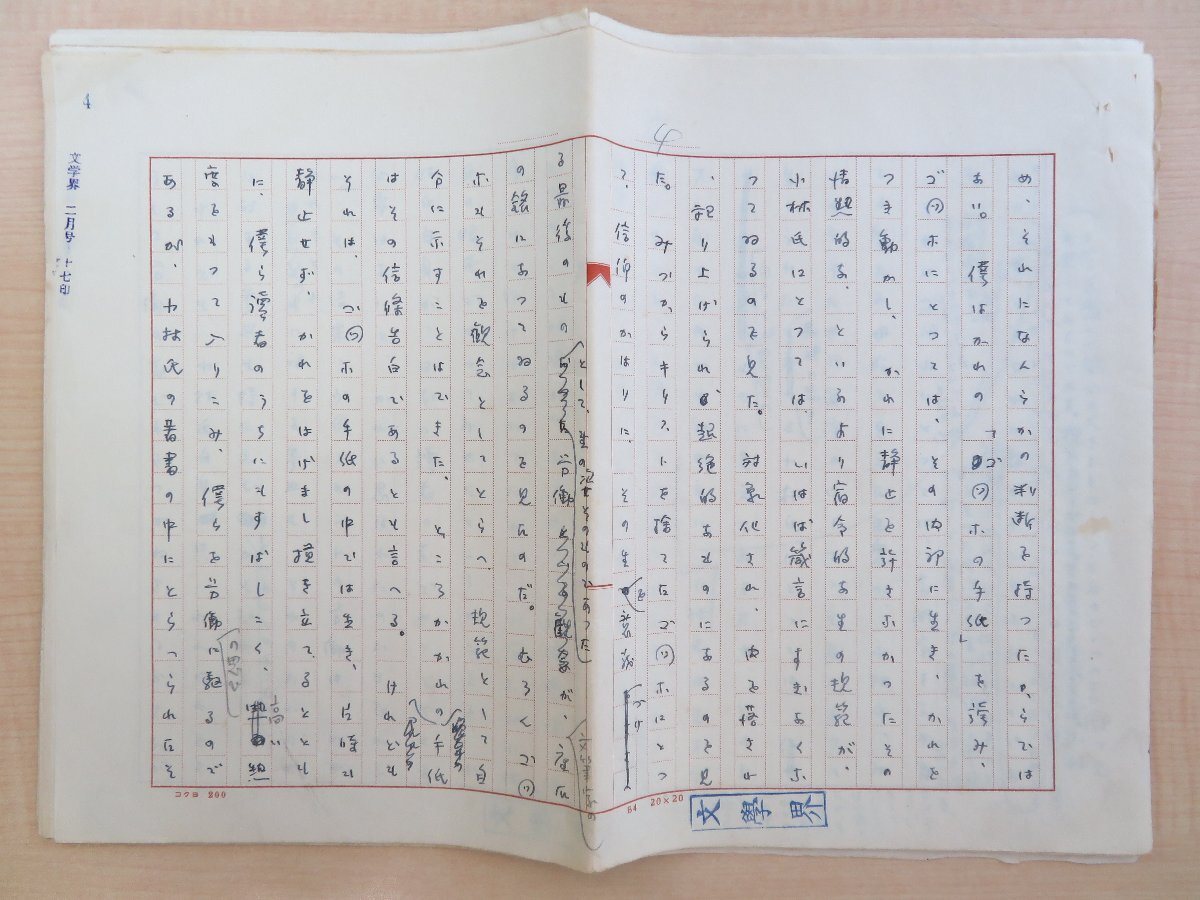 4
め、それになんらかの判断を持つたからでは
ない。 僕はかれの「ゴッホの手紙」を読み、
ゴッホにとつては、その内部に生き、かれを
つき動かし、かれに静止を許さなかつたその
情熱的な、といふより宿命的な生の規範が、
小林氏にとつては、いはば箴言にすぎなくな
つてゐるのを見た。 対象化され、肉を落され
、記り上げられ、超絶的なものになるのを見
た。 みづからキリストを捨てたゴッホにとつ
て、信仰のかはりに、その生を裏づけ
る最後のもの として、生の 労働 が、
の銘になつてゐるのを見たのだ。 むろん、ゴッ
ホもそれを観念としてとらへ、規範として自
分に示すことはできた。 ところがかれの手紙
はその信條告白であるとも言へる。 けれども
それは、ゴッホの手紙の中では生き、片時も
静止せず、かれをはげまし掻き立てるととも
に、 僕ら讀者のうちにもすばしこく、高い熱
度をもつて入りこみ、僕らを労働に駆るので
あるが、小林氏の著書の中にとらへられたそ
4
文学界 二月号 十七印
コクヨ 200
B4 20×20
文學界